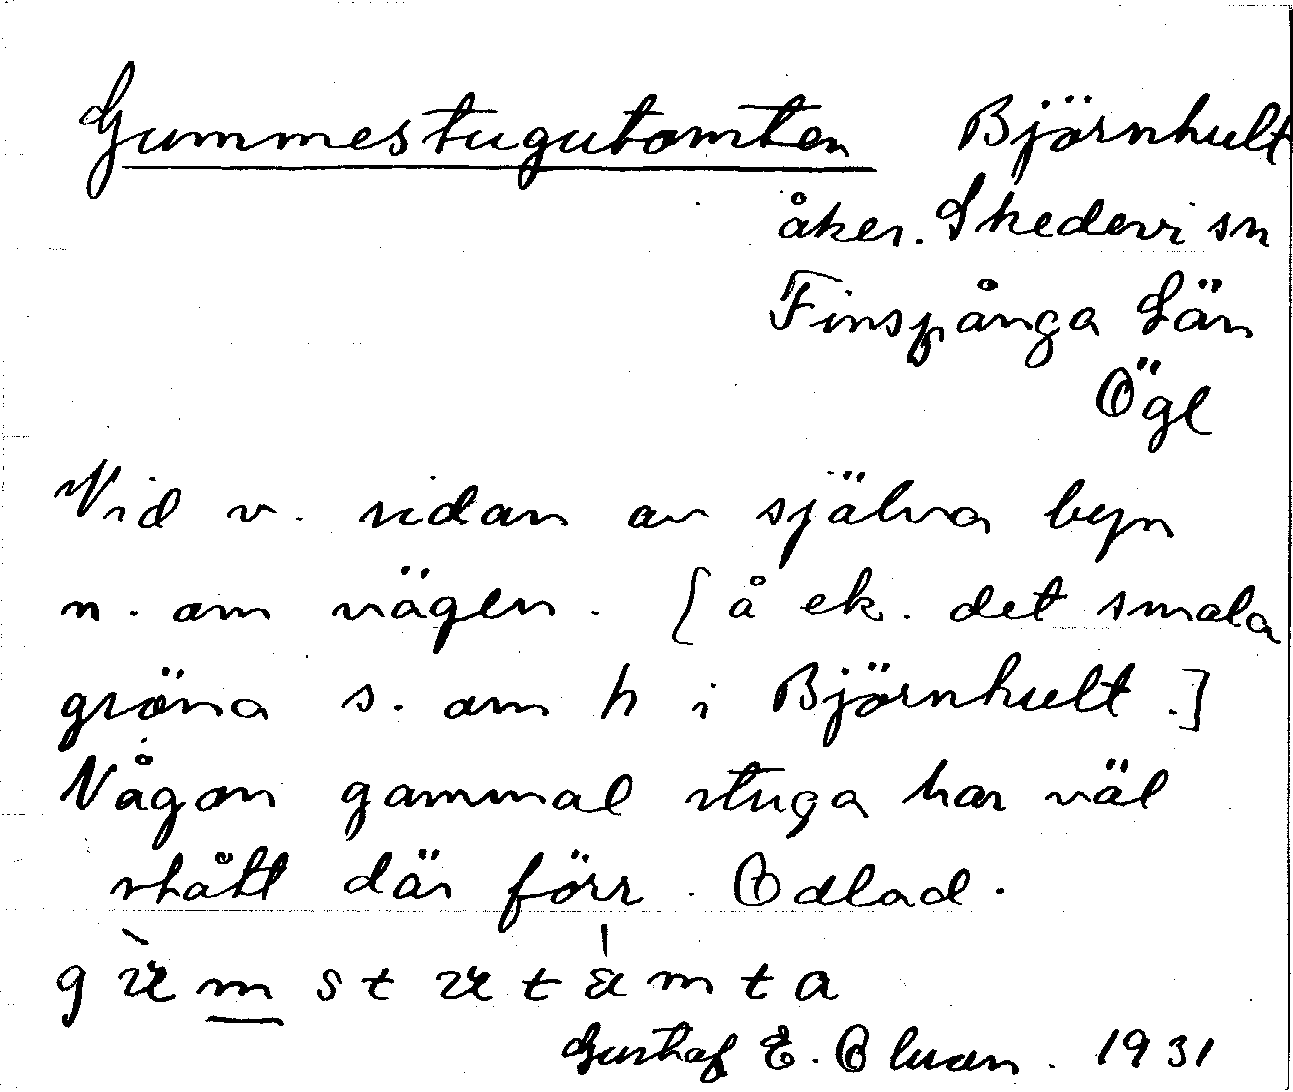 Gummestugutomten Björnhult
åker. Skedevi sn
Finspånga Län
Ögl
Vid v. sidan av själva byn
n. om vägen. [å ek. det smala
gröna s. om h i Björnhult.]
Någon gammal stuga har väl
stått där förr. Odlad.
Gustaf E. Oluan. 1931